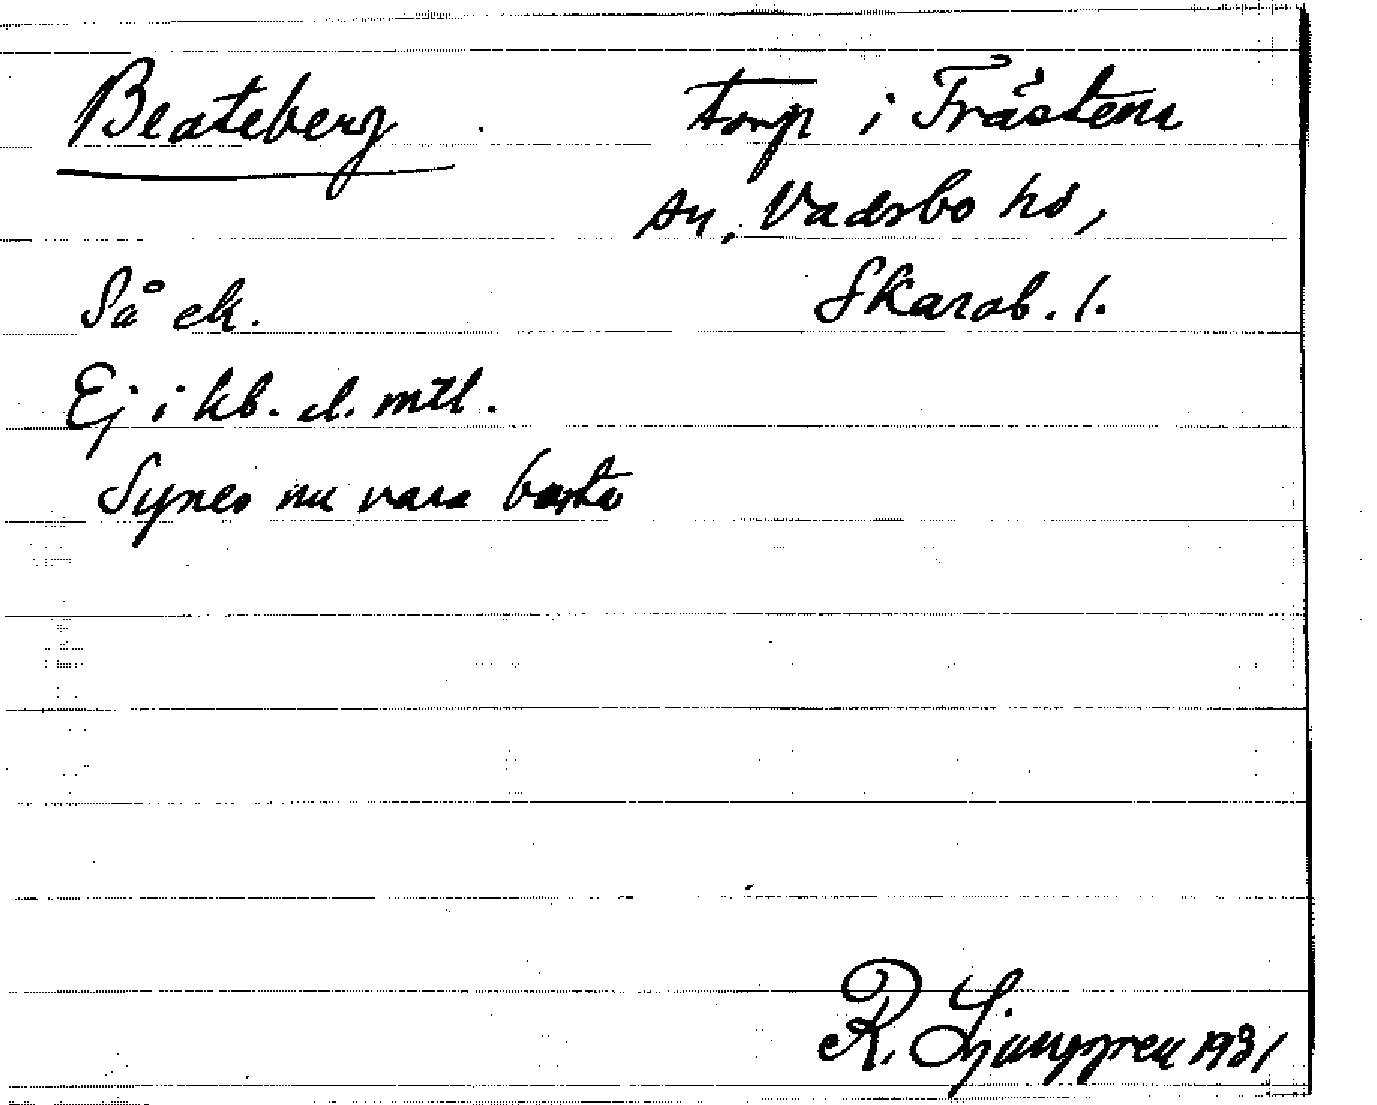 Beateberg torp i Fråstena
sn, Vadsbo hd,
Så ek. Skarab. l.
Ej i kb. el. mtl.
Synes nu vara borta
R. Ljunggren 1931